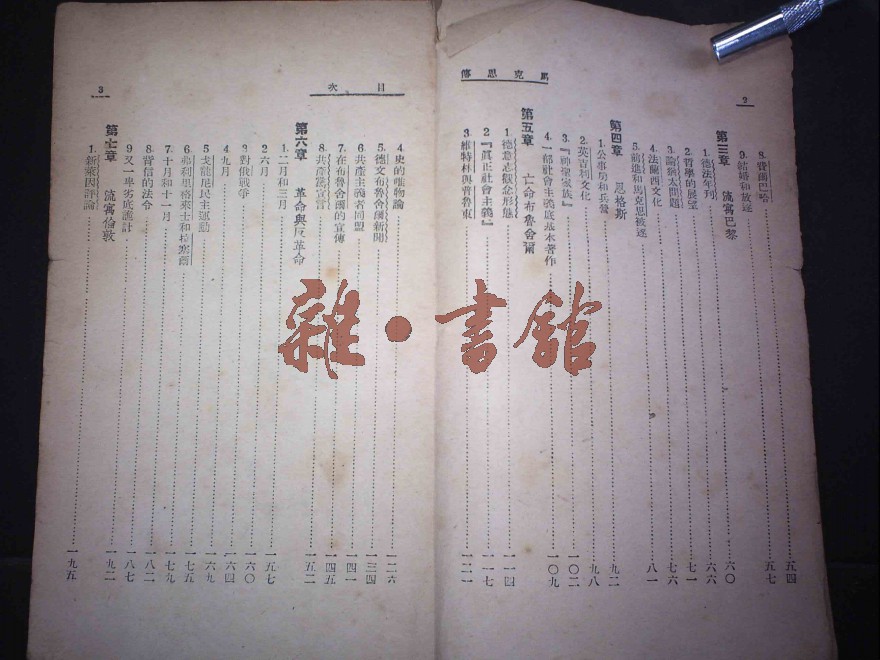 馬克思傳
2
8. 費爾巴哈 五四
9. 結婚和放逐 五七
第三章 流寓巴黎 六〇
1. 德法年刊 六六
2. 哲學的展望 七一
3. 論猶太問題 七六
4. 法蘭西文化 八一
5. 前進和馬克思被逐
第四章 恩格斯
1. 公事房和兵營 九二
2. 英吉利文化 九八
3. 『神聖家族』 一〇二
4. 一部社會主義底基本著作 一〇九
第五章 亡命布魯舍爾
1. 德意志觀念形態 一一四
2. 『眞正社會主義』 一一七
3. 維特林與普魯東 一二一
目次
3
4. 史的唯物論 一二六
5. 德文布魯舍爾新聞 一三四
6. 共產主義者同盟 一四一
7. 在布魯舍爾的宣傳 一四五
8. 共產黨宣言 一五二
第六章 革命與反革命
1. 二月和三月 一五七
2. 六月 一六〇
3. 對俄戰爭 一六四
4. 九月 一六九
5. 戈龍尼民主運動 一七五
6. 弗利里格萊士和拉塞爾 一七九
7. 十月和十一月 一八二
8. 背信的法令 一八七
9. 又一卑劣底詭計 一九二
第七章 流寓倫敦
1. 新萊因評論 一九五
雜·書館